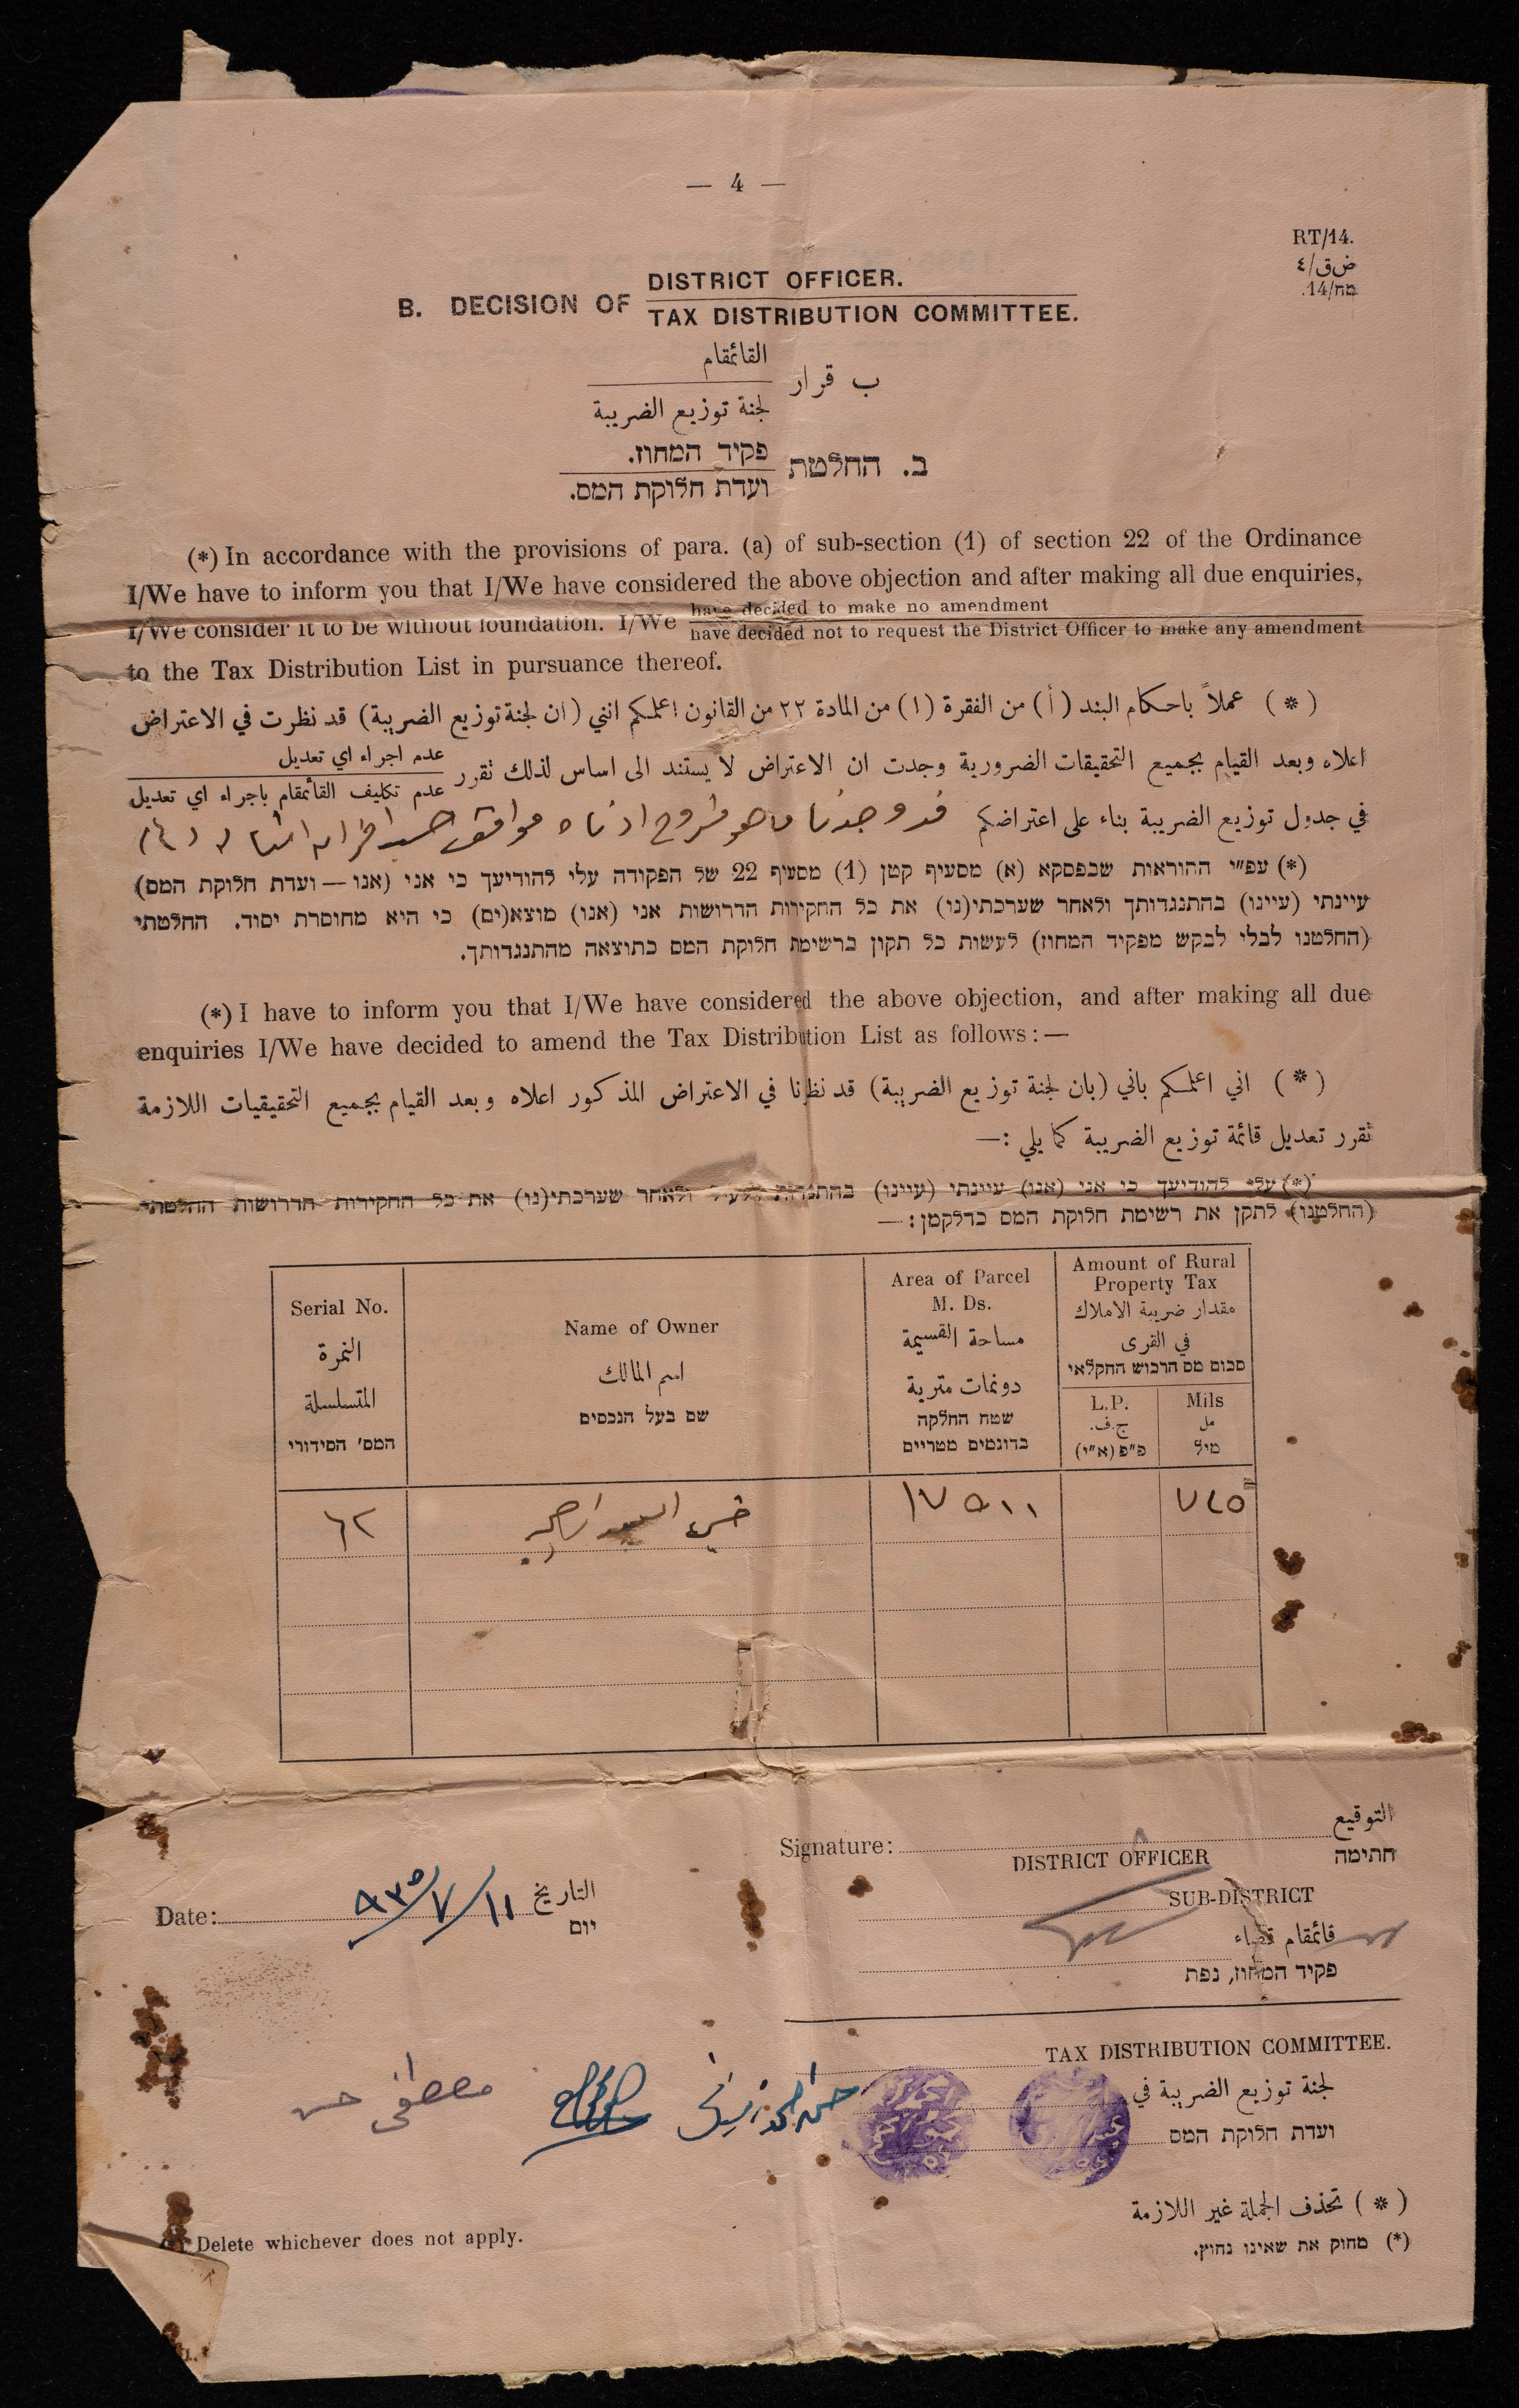 — 4 —
RT/14.
ض ق/٤
מח/14.
B. DECISION OF DISTRICT OFFICER.
TAX DISTRIBUTION COMMITTEE.
القائمقام
ب قرار
لجنة توزيع الضريبة
פקיד המחוז.
ב. החלטת
ועדת חלוקת המס.
(*) In accordance with the provisions of para. (a) of sub-section (1) of section 22 of the Ordinance
I/We have to inform you that I/We have considered the above objection and after making all due enquiries,
have decided to make no amendment
I/We consider it to be without foundation. I/We
have decided not to request the District Officer to make any amendment
to the Tax Distribution List in pursuance thereof.
(*) عملاً باحكام البند (أ) من الفقرة (١) من المادة ٢٢ من القانون اعلمكم انني (ان لجنة توزيع الضريبة) قد نظرت في الاعتراض
عدم اجراء اي تعديل
اعلاه وبعد القيام بجميع التحقيقات الضرورية وجدت ان الاعتراض لا يستند الى اساس لذلك تقرر
عدم تكليف القائمقام باجراء اي تعديل
في جدول توزيع الضريبة بناء على اعتراضكم قد وجدنا ما هو مشروح ادناه موافق حسب
(*) עפ״י ההוראות שבפסקא (א) מסעיף קטן (1) מסעיף 22 של הפקודה עלי להודיעך כי אני (אנו — ועדת חלוקת המס)
עיינתי (עיינו) בהתנגדותך ולאחר שערכתי(נו) את כל החקירות הדרושות אני (אנו) מוצא(ים) כי היא מחוסרת יסוד. החלטתי
(החלטנו לבלי לבקש מפקיד המחוז) לעשות כל תקון ברשימת חלוקת המס כתוצאה מהתנגדותך.
(*) I have to inform you that I/We have considered the above objection, and after making all due
enquiries I/We have decided to amend the Tax Distribution List as follows: —
(*) اني اعلمكم باني (بان لجنة توزيع الضريبة) قد نظرنا في الاعتراض المذكور اعلاه وبعد القيام بجميع التحقيقيات اللازمة
تقرر تعديل قائمة توزيع الضريبة كما يلي :—
(*) עלי להודיעך כי אני (אנו) עיינתי (עיינו) בהתנגדות דלעיל ולאחר שערכתי(נו) את כל החקירות הדרושות החלטתי
(החלטנו) לתקן את רשימת חלוקת המס כדלקמן: —
Serial No.
النمرة
المتسلسلة
המס׳ הסידורי
Name of Owner
اسم المالك
שם בעל הנכסים
Area of Parcel
M. Ds.
مساحة القسيمة
دونمات مترية
שטח החלקה
בדונמים מטריים
Amount of Rural
Property Tax
مقدار ضريبة الاملاك
في القرى
סכום מס הרכוש החקלאי
L.P.
ج.ف.
פ״פ (א״י)
Mils
مل
מיל
٦٢
١٧٥١١
٧٢٥
التوقيع
Signature:
חתימה
DISTRICT OFFICER
SUB-DISTRICT
قائمقام قضاء
פקיד המחוז, נפת
التاريخ
Date: ١١/٧/٩٣٥
יום
TAX DISTRIBUTION COMMITTEE.
لجنة توزيع الضريبة في
ועדת חלוקת המס
مصطفى حسن
(*) تحذف الجملة غير اللازمة
(*) Delete whichever does not apply.
(*) מחוק את שאינו נחוץ.